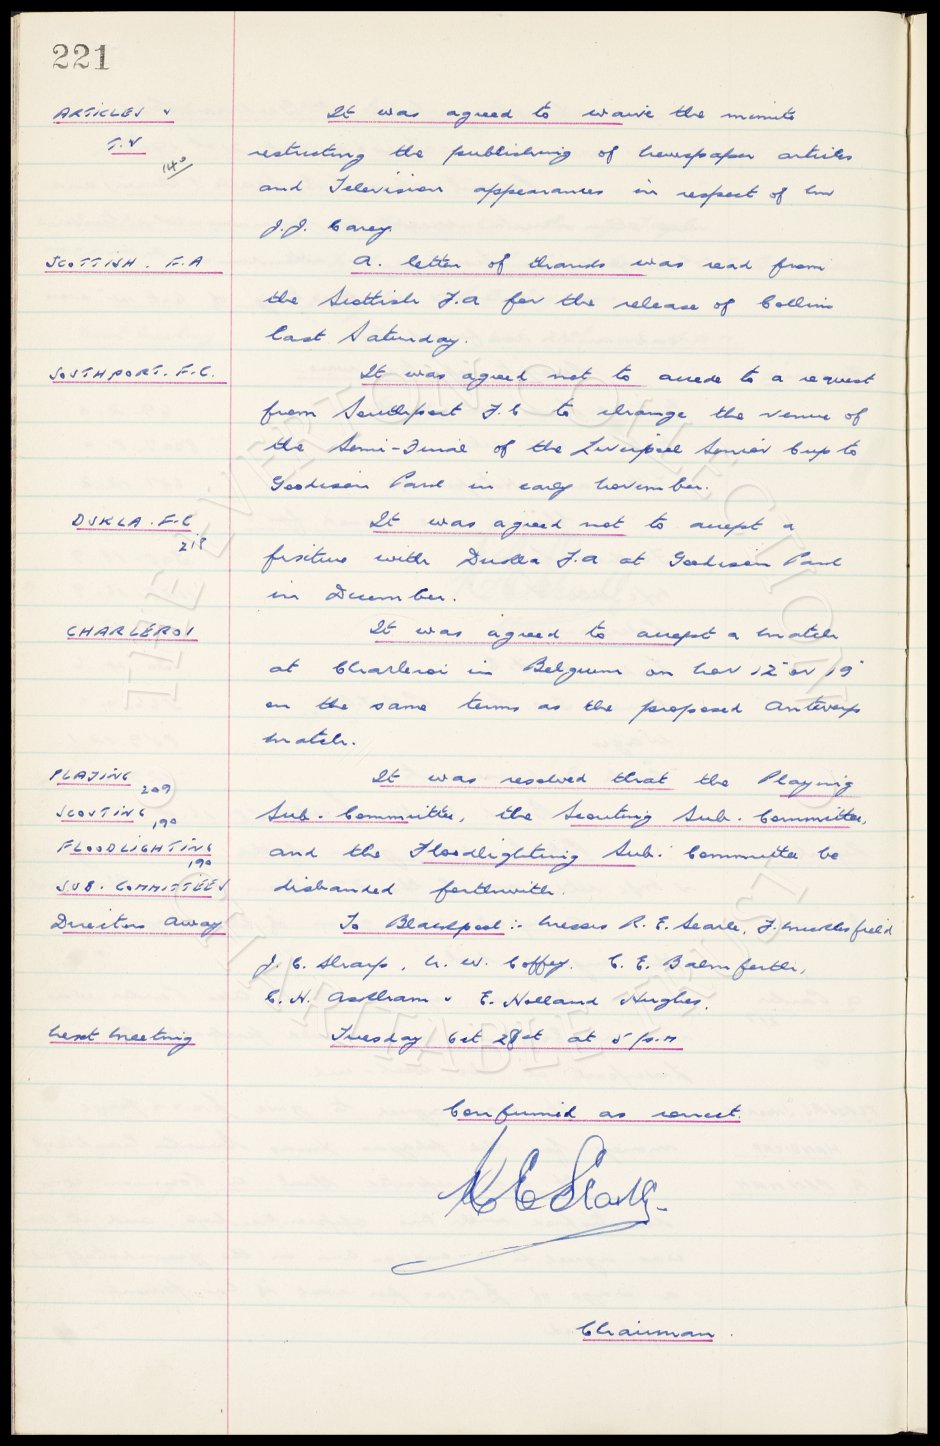 221
ARTICLES &
T.V
140
It was agreed to waive the minute
restricting the publishing of newspaper articles
and Television appearances in respect of Mr
J.J. Carey
SCOTTISH. F.A
A. letter of thanks was read from
the Scottish F.A for the release of Collins
last Saturday.
SOUTHPORT. F.C.
It was agreed not to accede to a request
from Southport F.C to change the venue of
the Semi-Final of the Liverpool Senior Cup to
Goodison Park in early November.
DUKLA. F.C.
218
It was agreed not to accept a
fixture with Dukla F.A at Goodison Park
in December.
CHARLEROI
It was agreed to accept a match
at Charleroi in Belgium on Nov 12 or 19
on the same terms as the proposed Antwerp
match.
PLAYING 209
SCOUTING 190
FLOODLIGHTING 190
SUB. COMMITTEES
It was resolved that the Playing
Sub. Committee, the Scouting Sub. Committee,
and the Floodlighting Sub. Committee be
disbanded forthwith.
Directors away
To Blackpool :- Messrs R. E. Searle, F. Micklesfield
J. C. Sharp, N. W. Coffey. C. E. Balmforth,
C. H. Askham & E. Holland Hughes.
Next Meeting
Tuesday Oct 28st at 5 p.m
Confirmed as correct.
Chairman.
© THE EVERTON COLLECTION
CHARITABLE TRUST